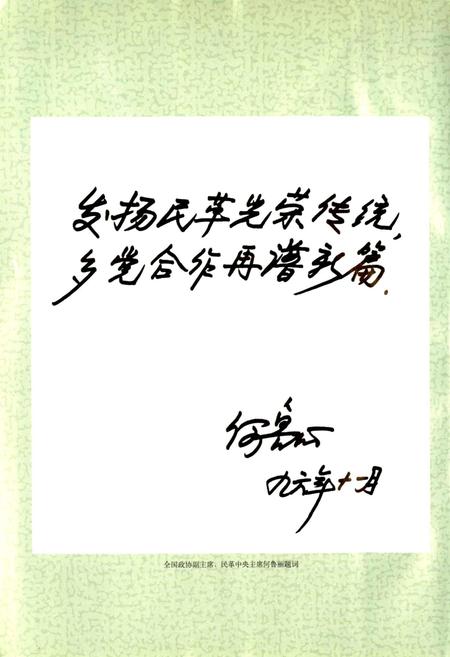 发扬民革光荣传统，
多党合作再谱新篇．
何鲁丽
九六年十一月
全国政协副主席、民革中央主席何鲁丽题词